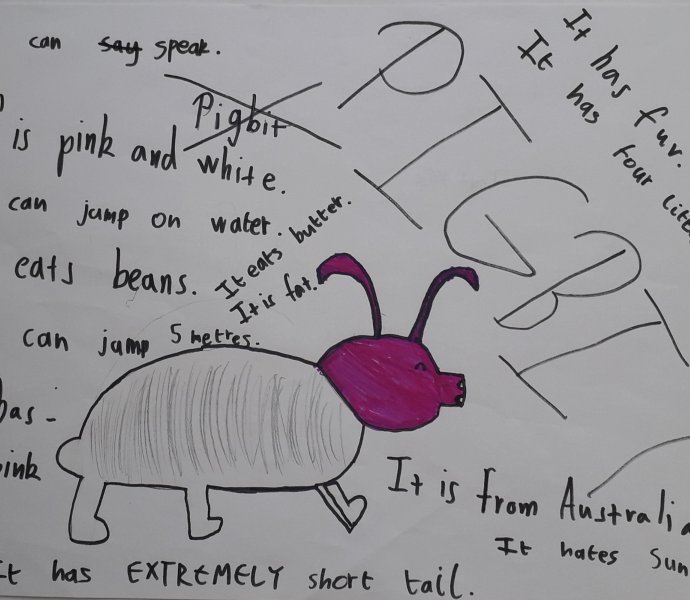 can say speak.
Pigbit
is pink and white.
can jump on water.
eats beans.
It eats butter.
It is fat.
can jump 5 metres.
has -
pink
PIGBI
It has fur.
It has four
It is from Australia
It hates Sun
It has EXTREMELY short tail.